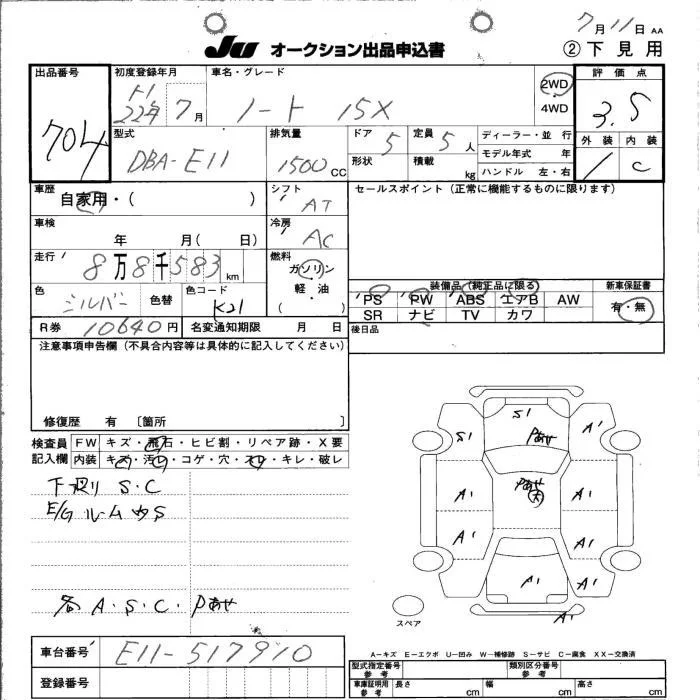 7月11日 AA
JU オークション出品申込書 ②下見用
出品番号 初度登録年月 車名・グレード 2WD 評価点
704 H22年7月 ノート 15X 4WD 3.5
型式 排気量 ドア 定員 ディーラー・並行 外装 内装
DBA-E11 1500CC 5 5人 モデル年式 年 1 C
形状 積載 kg ハンドル 左・右
車歴 シフト セールスポイント(正常に機能するものに限ります)
自家用・( ) AT
車検 冷房
年 月( 日) AC
走行 燃料
8万8千583km ガソリン
軽・油
( )
色 色替 色コード
シルバー K21
装備品(純正品に限る) 新車保証書
PS PW ABS エアB AW 有・無
SR ナビ TV カワ
R券 10640円 名変通知期限 月 日 後日品
注意事項申告欄(不具合内容等は具体的に記入してください)
修復歴 有 [箇所 ]
検査員 FW キズ・飛石・ヒビ割・リペア跡・X要
記入欄 内装 キズ・汚レ・コゲ・穴・スレ・キレ・破レ
下廻り S・C
E/Gルーム ウS
各A・S・C・Pあせ
S1 Pあせ A1
S1
A1 Pあせ(大) A1
A1 A1
A1 A1 A1
A1
スペア
A−キズ E−エクボ U−凹み W−補修跡 S−サビ C−腐食 XX−交換済
車台番号 E11-517910
登録番号
型式指定番号 参考 類別区分番号 参考
車庫証明用 参考 長さ cm 幅 cm 高さ cm